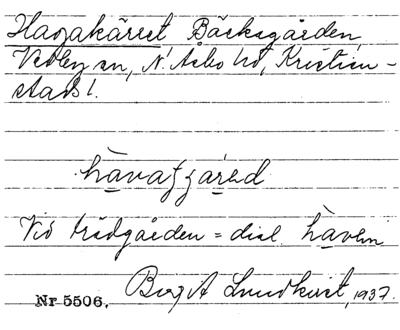 Hagakärret Bäcksgården,
Vedby sn, N. Åsbo hd, Kristian-
stads l.
hàvatjärəd
Vid trädgården = dial hàven
Birgit Lundkvist, 1937.
Nr 5506.